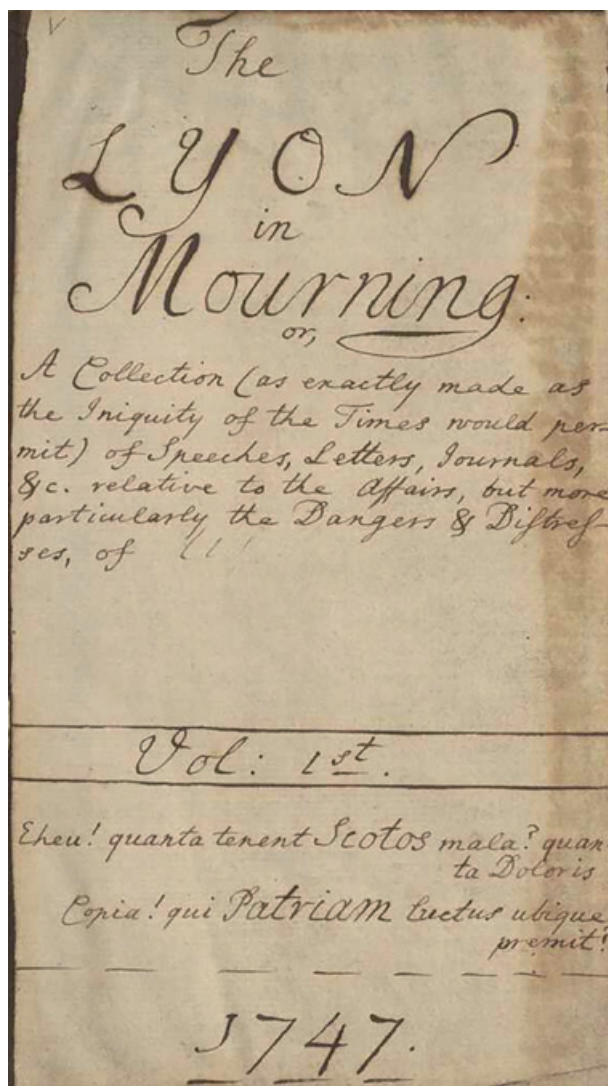 The
LYON
in
Mourning:
or,
A Collection (as exactly made as
the Iniquity of the Times would per-
mit) of Speeches, Letters, Journals,
&c. relative to the Affairs, but more
particularly the Dangers & Distreſ-
ses, of
Vol: 1st.
Eheu! quanta tenent Scotos mala? quan-
ta Doloris
Copia! qui Patriam luctus ubique
premit!
1747.